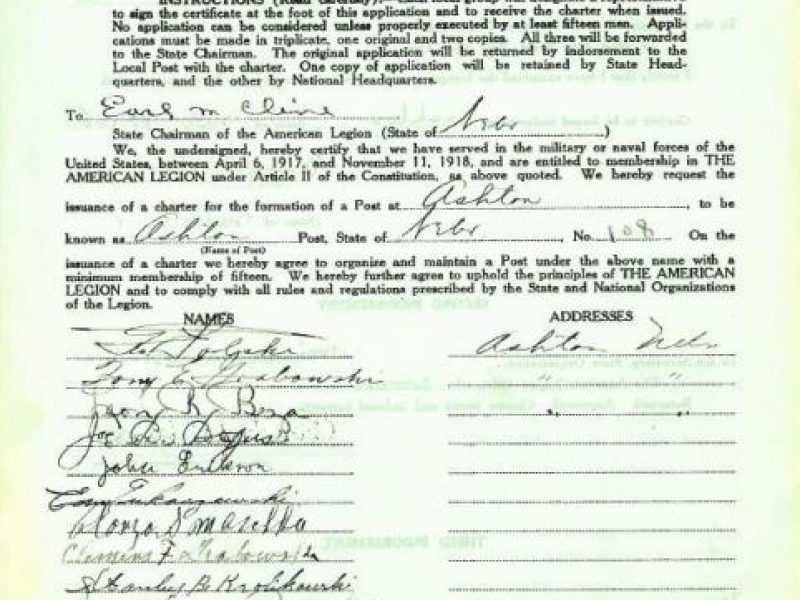 INSTRUCTIONS (Read carefully).
to sign the certificate at the foot of this application and to receive the charter when issued.
No application can be considered unless properly executed by at least fifteen men. Appli-
cations must be made in triplicate, one original and two copies. All three will be forwarded
to the State Chairman. The original application will be returned by indorsement to the
Local Post with the charter. One copy of application will be retained by State Head-
quarters, and the other by National Headquarters.
To Earl M Cline
State Chairman of the American Legion (State of Nebr)
We, the undersigned, hereby certify that we have served in the military or naval forces of the
United States, between April 6, 1917, and November 11, 1918, and are entitled to membership in THE
AMERICAN LEGION under Article II of the Constitution, as above quoted. We hereby request the
issuance of a charter for the formation of a Post at Ashton, to be
known as Ashton Post, State of Nebr, No. 108 On the
(Name of Post)
issuance of a charter we hereby agree to organize and maintain a Post under the above name with a
minimum membership of fifteen. We hereby further agree to uphold the principles of THE AMERICAN
LEGION and to comply with all rules and regulations prescribed by the State and National Organizations
of the Legion.
NAMES ADDRESSES
Ashton Nebr
Tony Grabowski " "
Leon R. Beza " "
Joe
John Erikson
Alonzo Smarella
Clemens F. Grabowski
Stanley B. Krolikowski